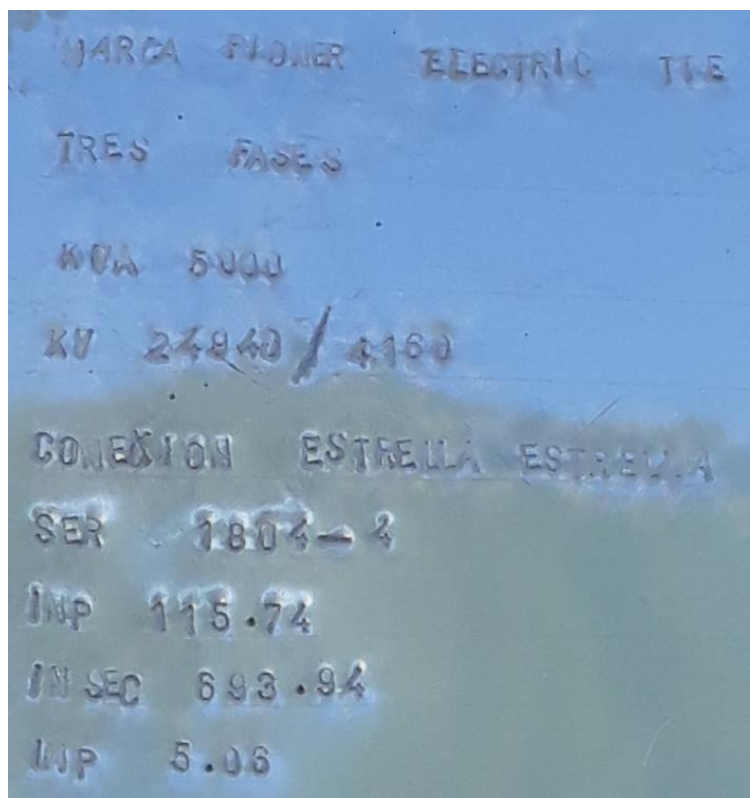 MARCA PIONER ELECTRIC TTE
TRES FASES
KVA 5000
KV 24940/4160
CONEXION ESTRELLA ESTRELLA
SER 1804-4
INP 115.74
IN SEC 693.94
5.06